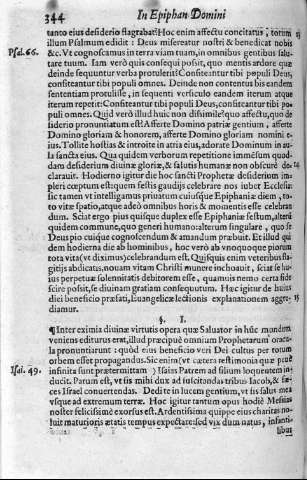 344 In Epiphan Domini
tanto eius desiderio flagrabat? Hoc enim affectu concitatus, totum
Psal. 66. illum Psalmum edidit: Deus misereatur nostri & benedicat nobis
&c. Vt cognoscamus in terra viam tuam, in omnibus gentibus salu-
tare tuum. Iam verò quis consequi possit, quo mentis ardore quæ
deinde sequuntur verba protulerit? Confiteantur tibi populi Deus,
confiteantur tibi populi omnes. Deinde non contentus bis eandem
sententiam protulisse, in sequenti versiculo eandem iterum atque
iterum repetit: Confiteantur tibi populi Deus, confiteantur tibi po-
puli omnes. Quid verò illud huic non dissimile? quo affectu, quo de-
siderio pronuntiatum est? Afferte Domino patriæ gentium, afferte
Domino gloriam & honorem, afferte Domino gloriam nomini e-
ius. Tollite hostias & introite in atria eius, adorate Dominum in au-
la sancta eius. Qua quidem verborum repetitione immensum quod-
dam desiderium diuinæ gloriæ, & salutis humanæ non obscurè de-
clarauit. Hodierno igitur die hoc sancti Prophetæ desiderium im-
pleri cœptum est: quem festis gaudijs celebrare nos iubet Ecclesia:
sic tamen vt intelligamus priuatum cuiusque Epiphaniæ diem, to-
to vitæ spatio, atque adeò omnibus horis & momentis esse celebran
dum. Sciat ergo pius quisque duplex esse Epiphaniæ festum, alterū
quidem commune, quo generi humano: alterum singulare, quo se
Deus pio cuique cognoscendum & amandum præbuit. Et illud qui
dem hodierna die ab hominibus, hoc verò ab vnoquoque piorum
tota vita (vt diximus) celebrandum est. Quisquis enim veteribus fla-
gitijs abdicatis, nouam vitam Christi munere inchoauit, sciat se hu-
ius perpetuæ solennitatis debitorem esse, quamuis nemo certa fide
scire possit, se diuinam gratiam consequutum. Hæc igitur de huius
diei beneficio præfati, Euangelicæ lectionis explanationem aggre-
diamur.
§. I.
¶ Inter eximia diuinæ virtutis opera quæ Saluator in hūc mundum
veniens editurus erat, illud præcipuè omnium Prophetarum oracu-
la pronuntiarunt: quòd eius beneficio veri Dei cultus per totum
orbem esset propagandus. Sic enim (vt cætera testimonia quæ penè
Isai. 49. infinita sunt prætermittam) Isaias Patrem ad filium loquentem in-
ducit. Parum est, vt sis mihi dux ad suscitandas tribus Iacob, & fæ-
ces Israel conuertendas. Dedite in lucem gentium, vt sis salus mea
vsque ad extremum terræ. Hoc igitur tantum opus hodie Messias
noster felicissimè exorsus est. Ardentissima quippe eius charitas no-
luit maturioris ætatis tempus expectare: sed vix dum natus, infanti-
libus